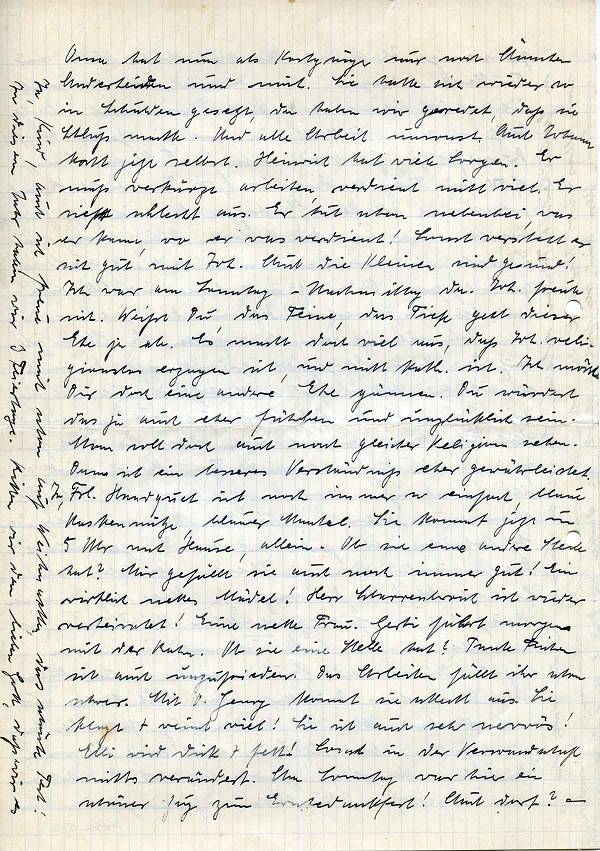 Oma hat nun als Kostgänger nur noch
und mich. Sie hatte sich wieder so
in Schulden gesetzt, da haben wir geredet, daß sie
Schluß machte. Und alle Arbeit umsonst. Auch Johann
kocht jetzt selbst. Heinrich hat viele Sorgen. Er
muß verkürzt arbeiten, verdient nicht viel. Er
sieht schlecht aus. Er tut schon nebenbei, was
er kann, wo er was verdient! Sonst versteht er
sich gut mit Joh. Auch die Kleinen sind gesund!
Ich war am Sonntag-Nachmittag da. Joh. freute
sich. Weißt Du, das Feine, das Tiefe geht dieser
Ehe ja ab. Es macht doch viel aus, daß Joh. reli-
gionslos erzogen ist, und nicht kath. ist. Ich möchte
Dir doch eine andere Ehe gönnen. Du würdest
das ja auch eher fühlen und unglücklich sein.
Man soll doch auch nach gleicher Religion sehen.
Dann ist ein besseres Verständnis eher gewährleistet.
Ja, Frl. Handquist ist noch immer so einfach, blaue
Baskenmütze, blauer Mantel. Sie kommt jetzt um
5 Uhr nach Hause, allein. Ob sie eine andere Stelle
hat? Mir gefällt sie auch noch immer gut! Ein
wirklich nettes Mädel! Herr ist wieder
verheiratet! Eine nette Frau. Gerti fährt morgen
mit der Bahn. Ob sie eine Stelle hat? Tante
ist auch unzufrieden. Das Arbeiten fällt ihr schon
schwer. Mit O. Georg kommt sie schlecht aus. Sie
klagt + weint viel! Sie ist auch sehr nervös!
Elli wird dick + fett! Sonst in der Verwandtschaft
nichts verändert. Am Sonntag war hier ein
schöner Zug zum Erntedankfest! Auch dort? –
Ja, Kind, auch ich freue mich schon auf Weihnachten, das schönste Fest!
In diesem Jahr haben wir 3 Feiertage. Bitten wir den lieben Gott, daß wir es